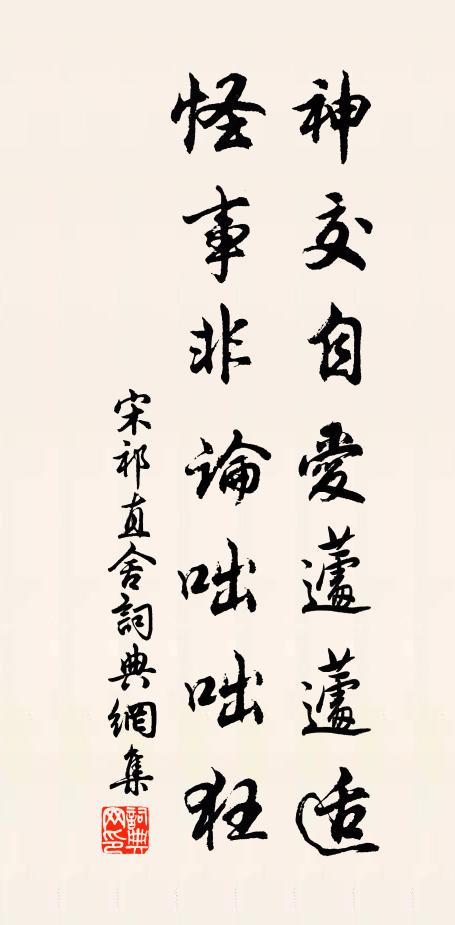 神交自愛蘧蘧适
怪事非論咄咄狂
宋祁直舍詞典網集
詞典网印